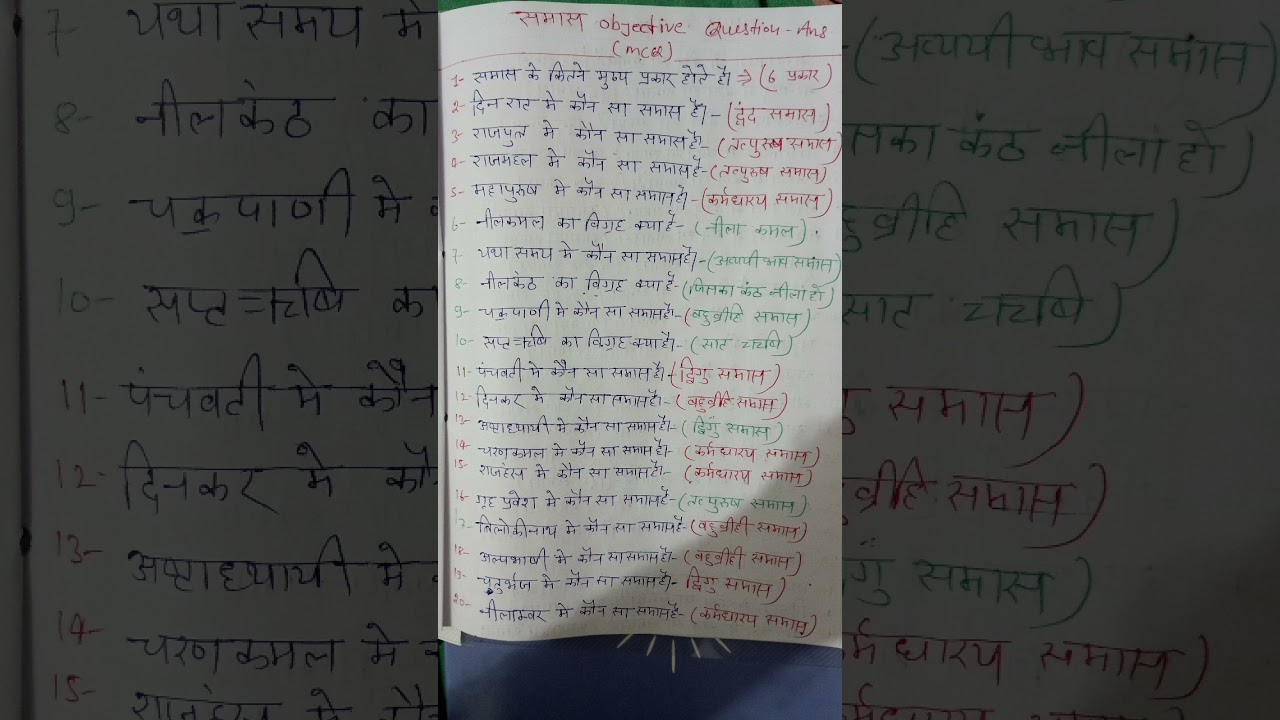 समास objective Question - Ans
(MCQ)
1- समास के कितने मुख्य प्रकार होते है। → (6 प्रकार)
2- दिन रात मे कौन सा समास है। - (द्वंद समास)
3- राजपुत्र मे कौन सा समास है। - (तत्पुरुष समास)
4- राजमहल मे कौन सा समास है - (तत्पुरुष समास)
5- महापुरुष मे कौन सा समास है। - (कर्मधारय समास)
6- नीलकमल का विग्रह क्या है - (नीला कमल)
7- यथा समय मे कौन सा समास है। - (अव्ययी भाव समास)
8- नीलकंठ का विग्रह क्या है - (जिसका कंठ नीला हो)
9- चक्रपाणी मे कौन सा समास है। - (बहुव्रीहि समास)
10- सप्त=ऋषि का विग्रह क्या है। - (सात ऋषि)
11- पंचवटी मे कौन सा समास है। - (द्विगु समास)
12- दिनकर मे कौन सा समास है। - (बहुव्रीहि समास)
13- अष्टाध्यायी मे कौन सा समास है। - (द्विगुं समास)
14- चरणकमल मे कौन सा समास है - (कर्मधारय समास)
15- राजहंस मे कौन सा समास है - (कर्मधारय समास)
16- गृह प्रवेश मे कौन सा समास है - (तत्पुरुष समास)
17- त्रिलोकीनाथ मे कौन सा समास है - (बहुव्रीही समास)
18- अल्पभाषी मे कौन सा समास है। - (बहुव्रीही समास)
19- चतुर्भुज मे कौन सा समास है। - द्विगु समास)
20- नीलाम्बर मे कौन सा समास है - (कर्मधारय समास)